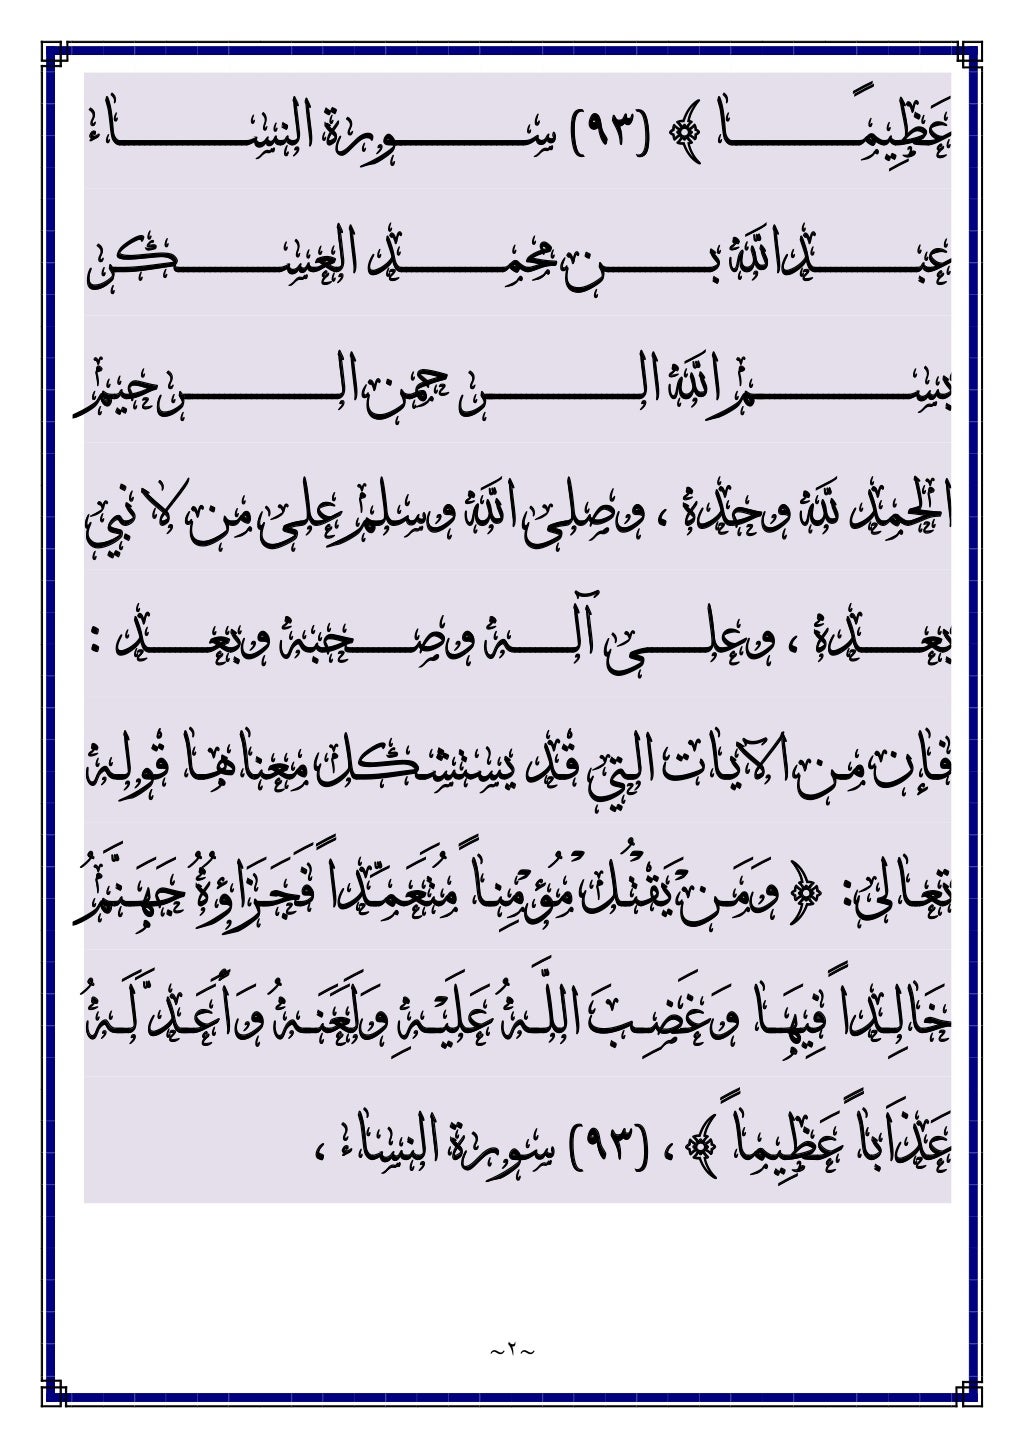 عَظِيمًا ﴾ (٩٣) سورة النساء
عبدالله بن محمد العسكر
بسم الله الرحمن الرحيم
الحمد لله وحده ، وصلى الله وسلم على من لا نبي
بعده ، وعلى آله وصحبه وبعد :
فإن من الآيات التي قد يستشكل معناها قوله
تعالى: ﴿ وَمَن يَقْتُلْ مُؤْمِناً مُتَعَمِّداً فَجَزَاؤُهُ جَهَنَّمُ
خَالِداً فِيهَا وَغَضِبَ اللَّهُ عَلَيْهِ وَلَعَنَهُ وَأَعَدَّ لَهُ
عَذَاباً عَظِيماً ﴾ ، (٩٣) سورة النساء ،
~٢~